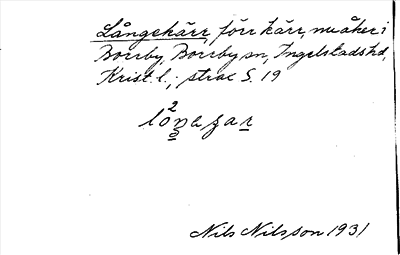 Långekärr, förr kärr, nu åker i
Borrby, Borrby sn, Ingelstads hd,
Krist. l.; strax S. 19
2
Nils Nilsson 1931